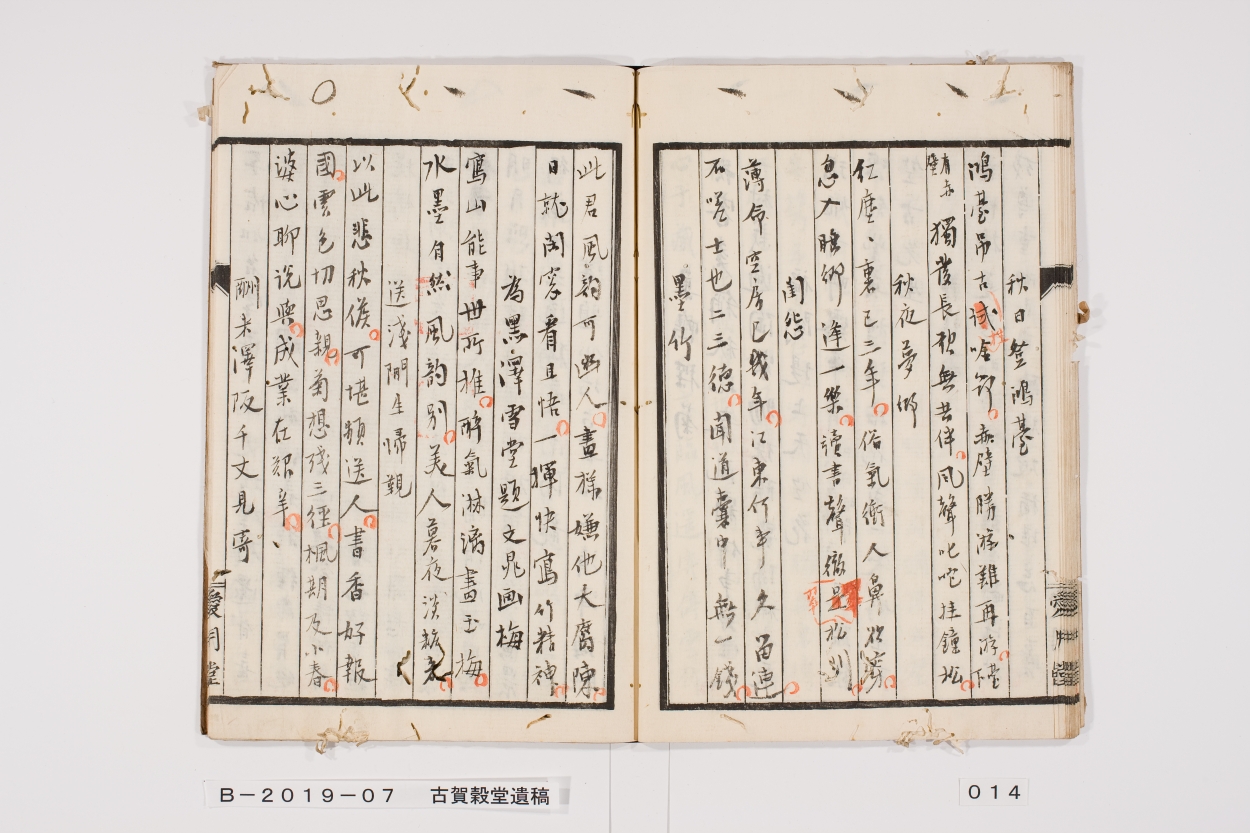 秋日登鴻臺
鴻臺吊古試吟節赤壁勝游難再游陸
有赤壁
獨發長歌無共伴風聲叱咤挂鐘松
秋夜夢鄉
紅塵、裏已三年俗氣衝人鼻欲
息入睡鄉逢一樂讀書聲徹是松
閨怨
薄命空房已幾年江東何事久留連
不嗟士也二三德聞道囊中無一錢
墨竹
此君風韵可幽人畫樣嫌他大腐陳
日就閑窓看且悟一揮快寫竹精神
為黑澤雪堂題文晁画梅
寫山能事世所推醉氣淋漓畫玉梅
水墨自然風韵別美人暮夜淡粧来
送淺開生帰覲
以此悲秋候可堪頻送人書香好報
國雲色切思親菊想残三径楓期及小春
婆心聊説與成業在艱辛、
酬米澤阪千丈見寄
愛月堂
B-2019-07 古賀穀堂遺稿
014